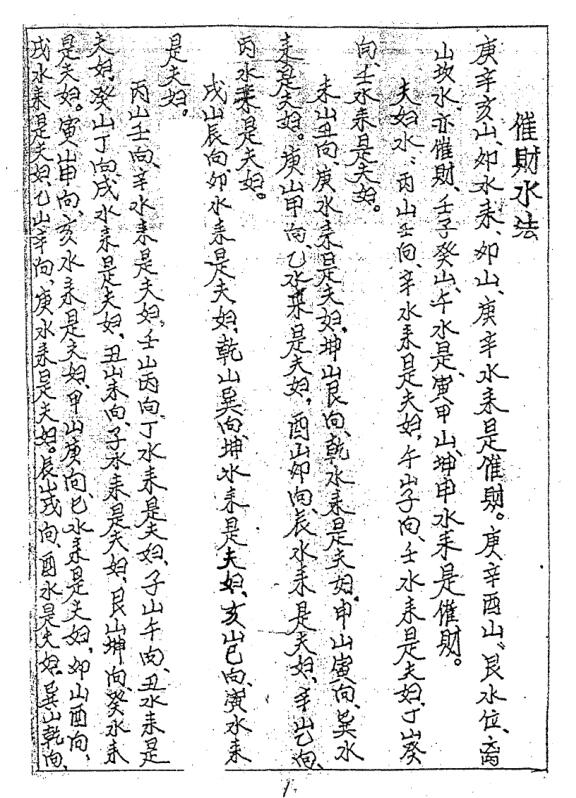 催財水法
庚辛亥山、卯水耒、卯山、庚辛水耒是催財。庚辛酉山、艮水位、离
山坎水亦催財、壬子癸山、午水是、寅甲山、坤申水耒是催財。
夫妇水、丙山壬向、辛水耒是夫妇，午山子向、壬水耒是夫妇、丁山癸
向、壬水耒是夫妇。
未山丑向、庚水耒是夫妇，坤山艮向、乾水耒是夫妇，申山寅向、巽水
耒是夫妇。庚山甲向、乙水耒是夫妇，酉山卯向、辰水耒是夫妇、辛山乙向、
丙水耒是夫妇。
戌山辰向、卯水耒是夫妇，乾山巽向、坤水耒是夫妇、亥山巳向、寅水耒
是夫妇。
丙山壬向、辛水耒是夫妇，壬山丙向、丁水耒是夫妇、子山午向、丑水耒是
夫妇，癸山丁向、戌水耒是夫妇，丑山未向、子水耒是夫妇，艮山坤向、癸水耒
是夫妇。寅山甲向、亥水耒是夫妇、甲山庚向、巳水耒是夫妇，卯山酉向、
戌水耒是夫妇，乙山辛向、庚水耒是夫妇。辰山戌向、酉水是夫妇，巽山乾向、
1